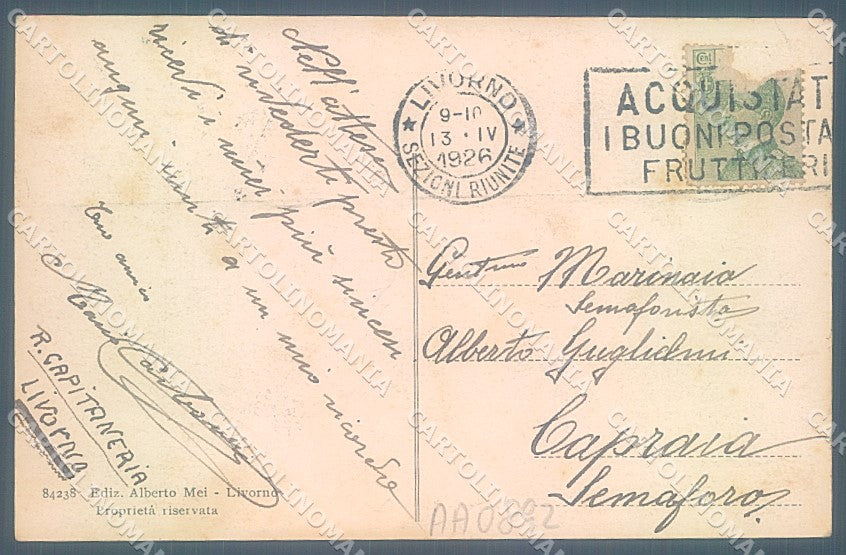 Nell'attesa
di rivederti presto
ricevi i miei più sinceri
auguri uniti a un mio ricordo
Tuo amico
R. CAPITANERIA
LIVORNO
84238 Ediz. Alberto Mei - Livorno
Proprietá riservata
LIVORNO
9-10
13 · IV
1926
SEZIONI RIUNITE
Cent
ACQUISTAT
I BUONI POSTA
FRUTTIFERI
Marinaia
Semaforista
Alberto Guglielmi
Capraia
Semaforo
AA0802
CARTOLINOMANIA